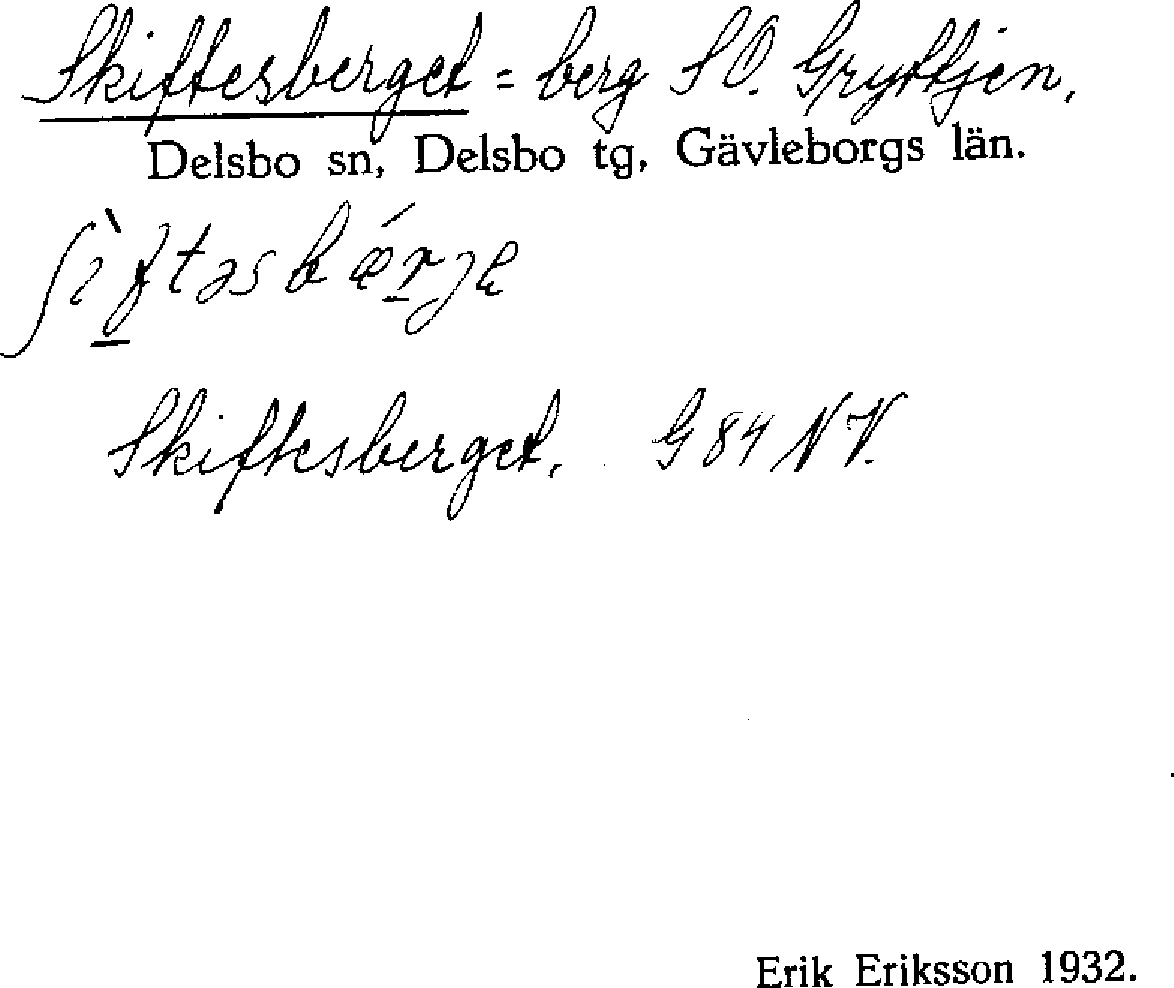 Skiftesberget = berg SO. Gryttjen.
Delsbo sn, Delsbo tg, Gävleborgs län.
ʃìftəsbǽrje
Skiftesberget. G 84 NV.
Erik Eriksson 1932.